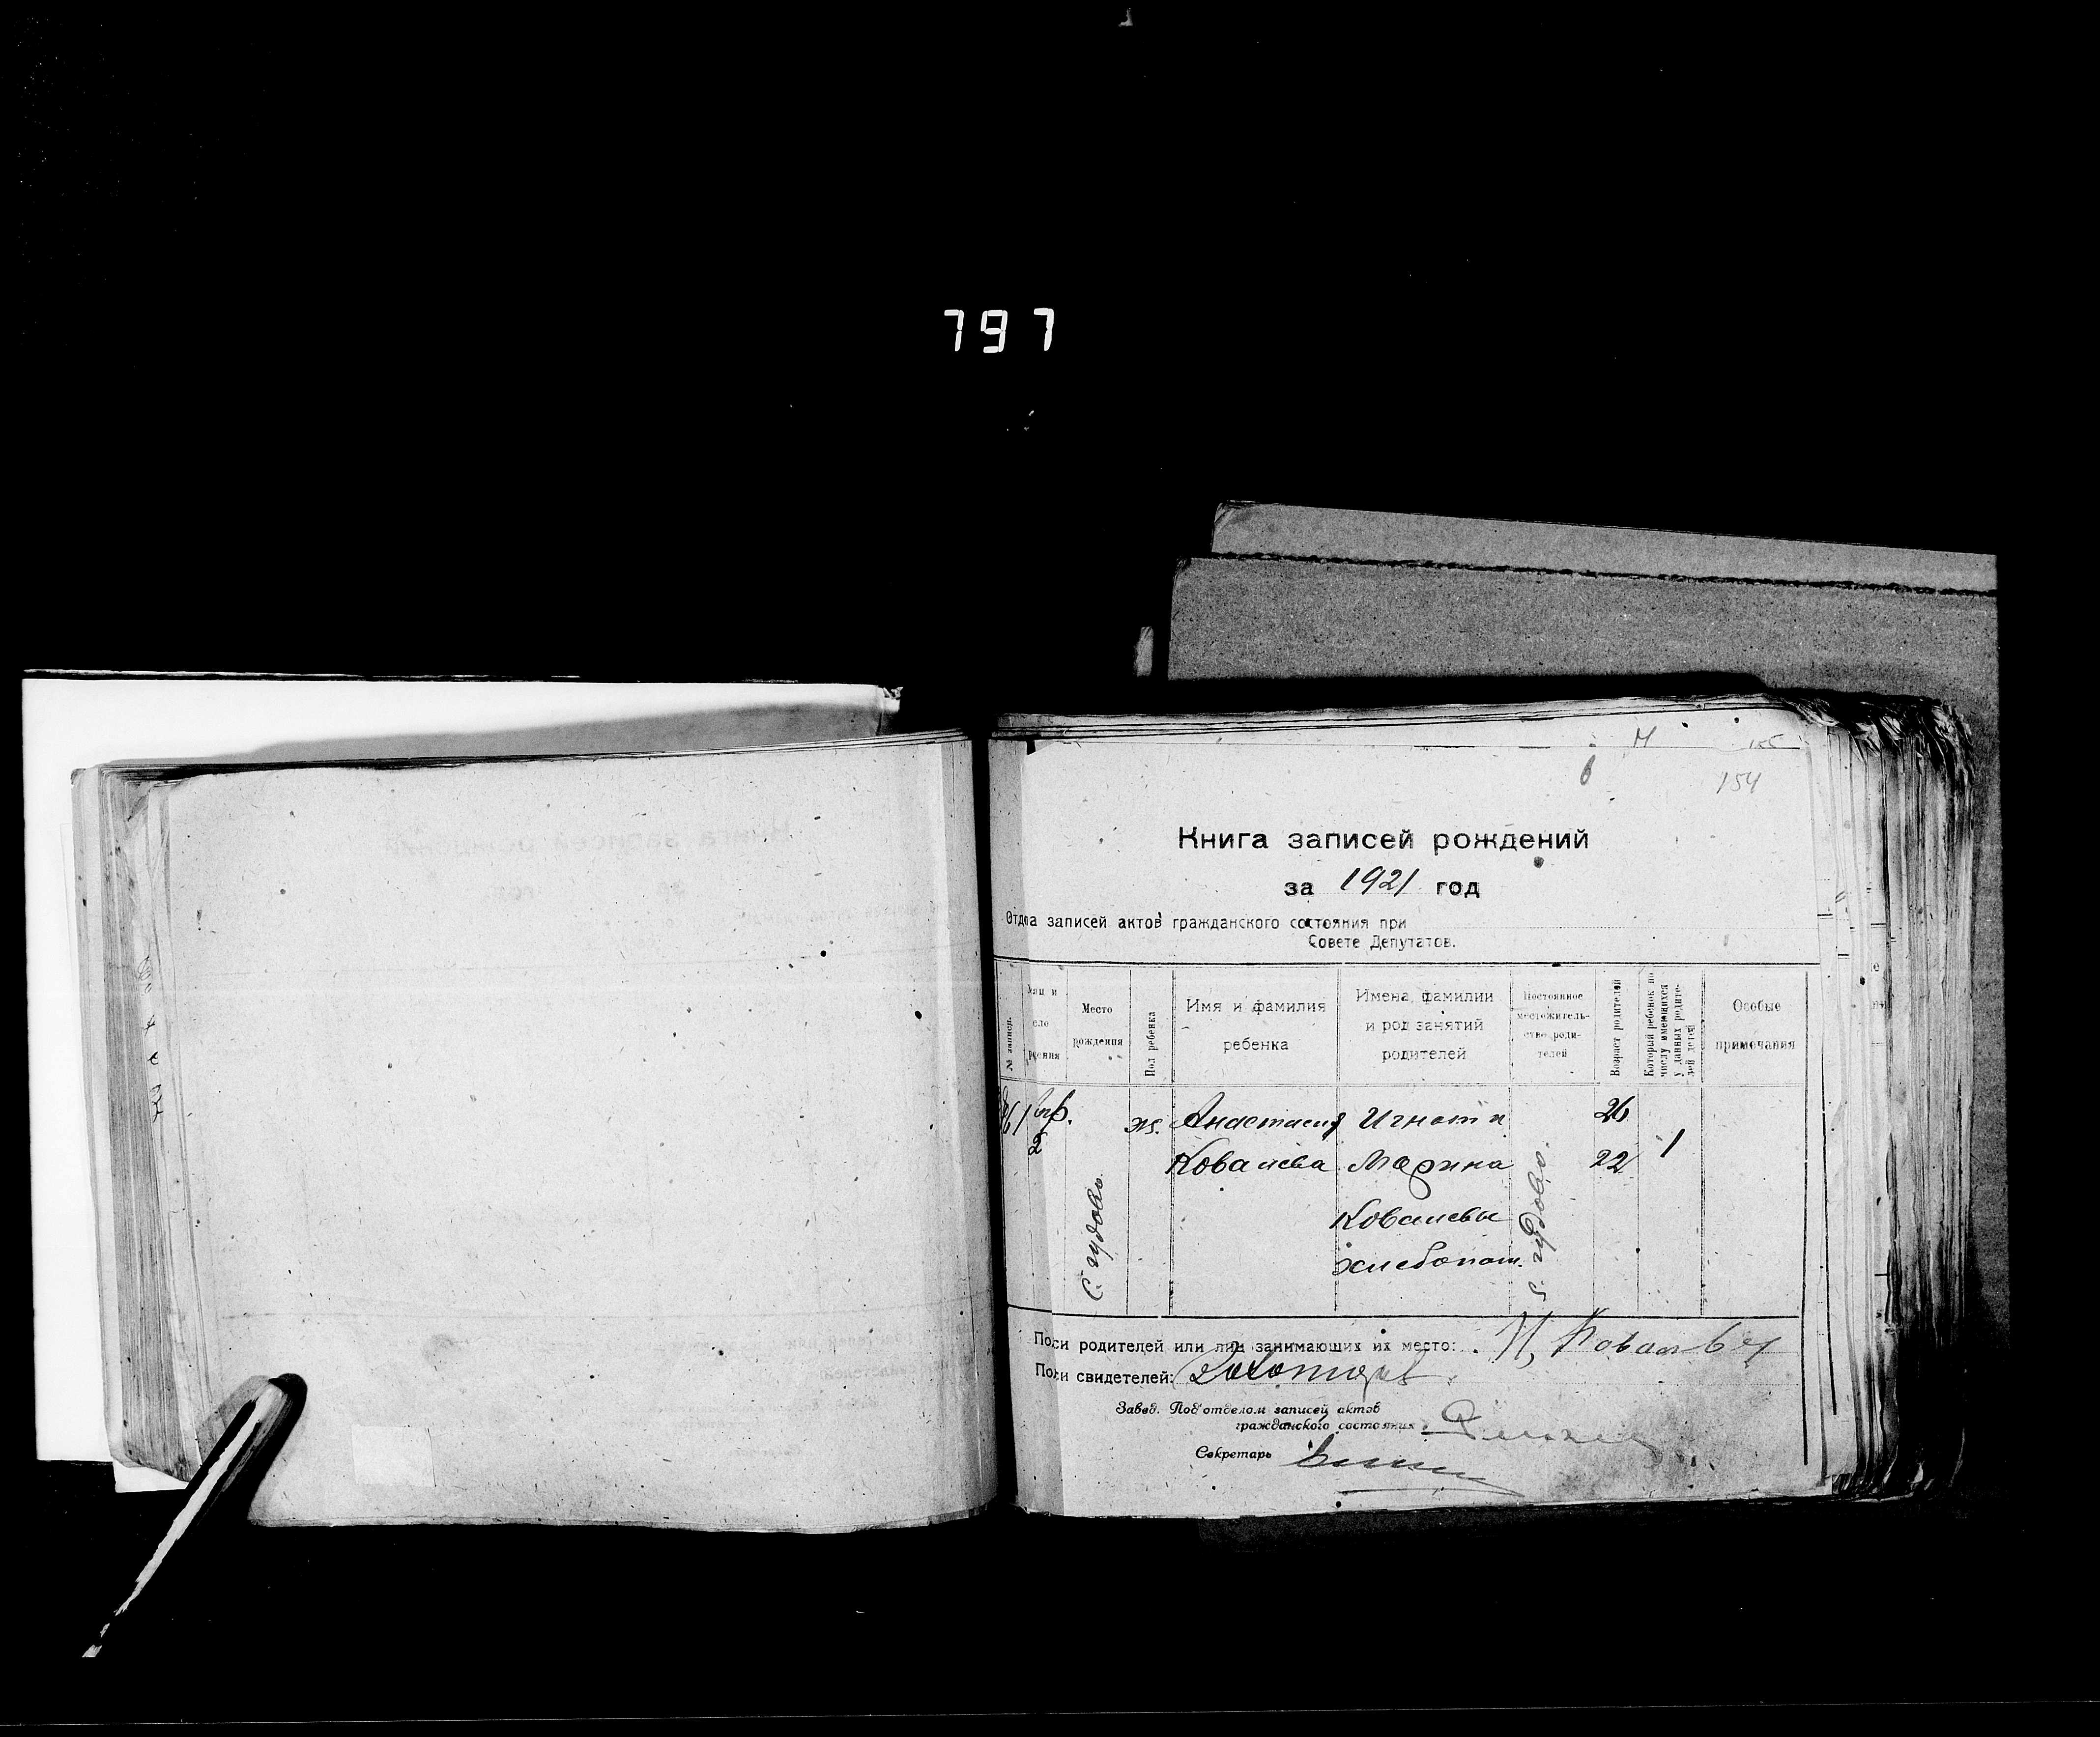 797
154
Книга записей рождений
за 1921 год
Отдела записей актов гражданского состояния при
Совете Депутатов.
№ записи.
Место рождения
Пол ребенка
Имя и фамилия ребенка
Имена, фамилии и род занятий родителей
Постоянное местожительство родителей
Возраст родителей
Который ребенок по числу имеющихся у данных родителей детей
Особые примечания
2
с. Чудово.
ж.
Анастасия
Ковалева
Игнатий
Марина
Ковалевы
хлебопаш.
с. Чудово.
26
22
1
Подписи родителей или лиц занимающих их место: И, Ковалев
Подписи свидетелей:
Завед. Под'отделом записей актов
гражданского состояния
Секретарь